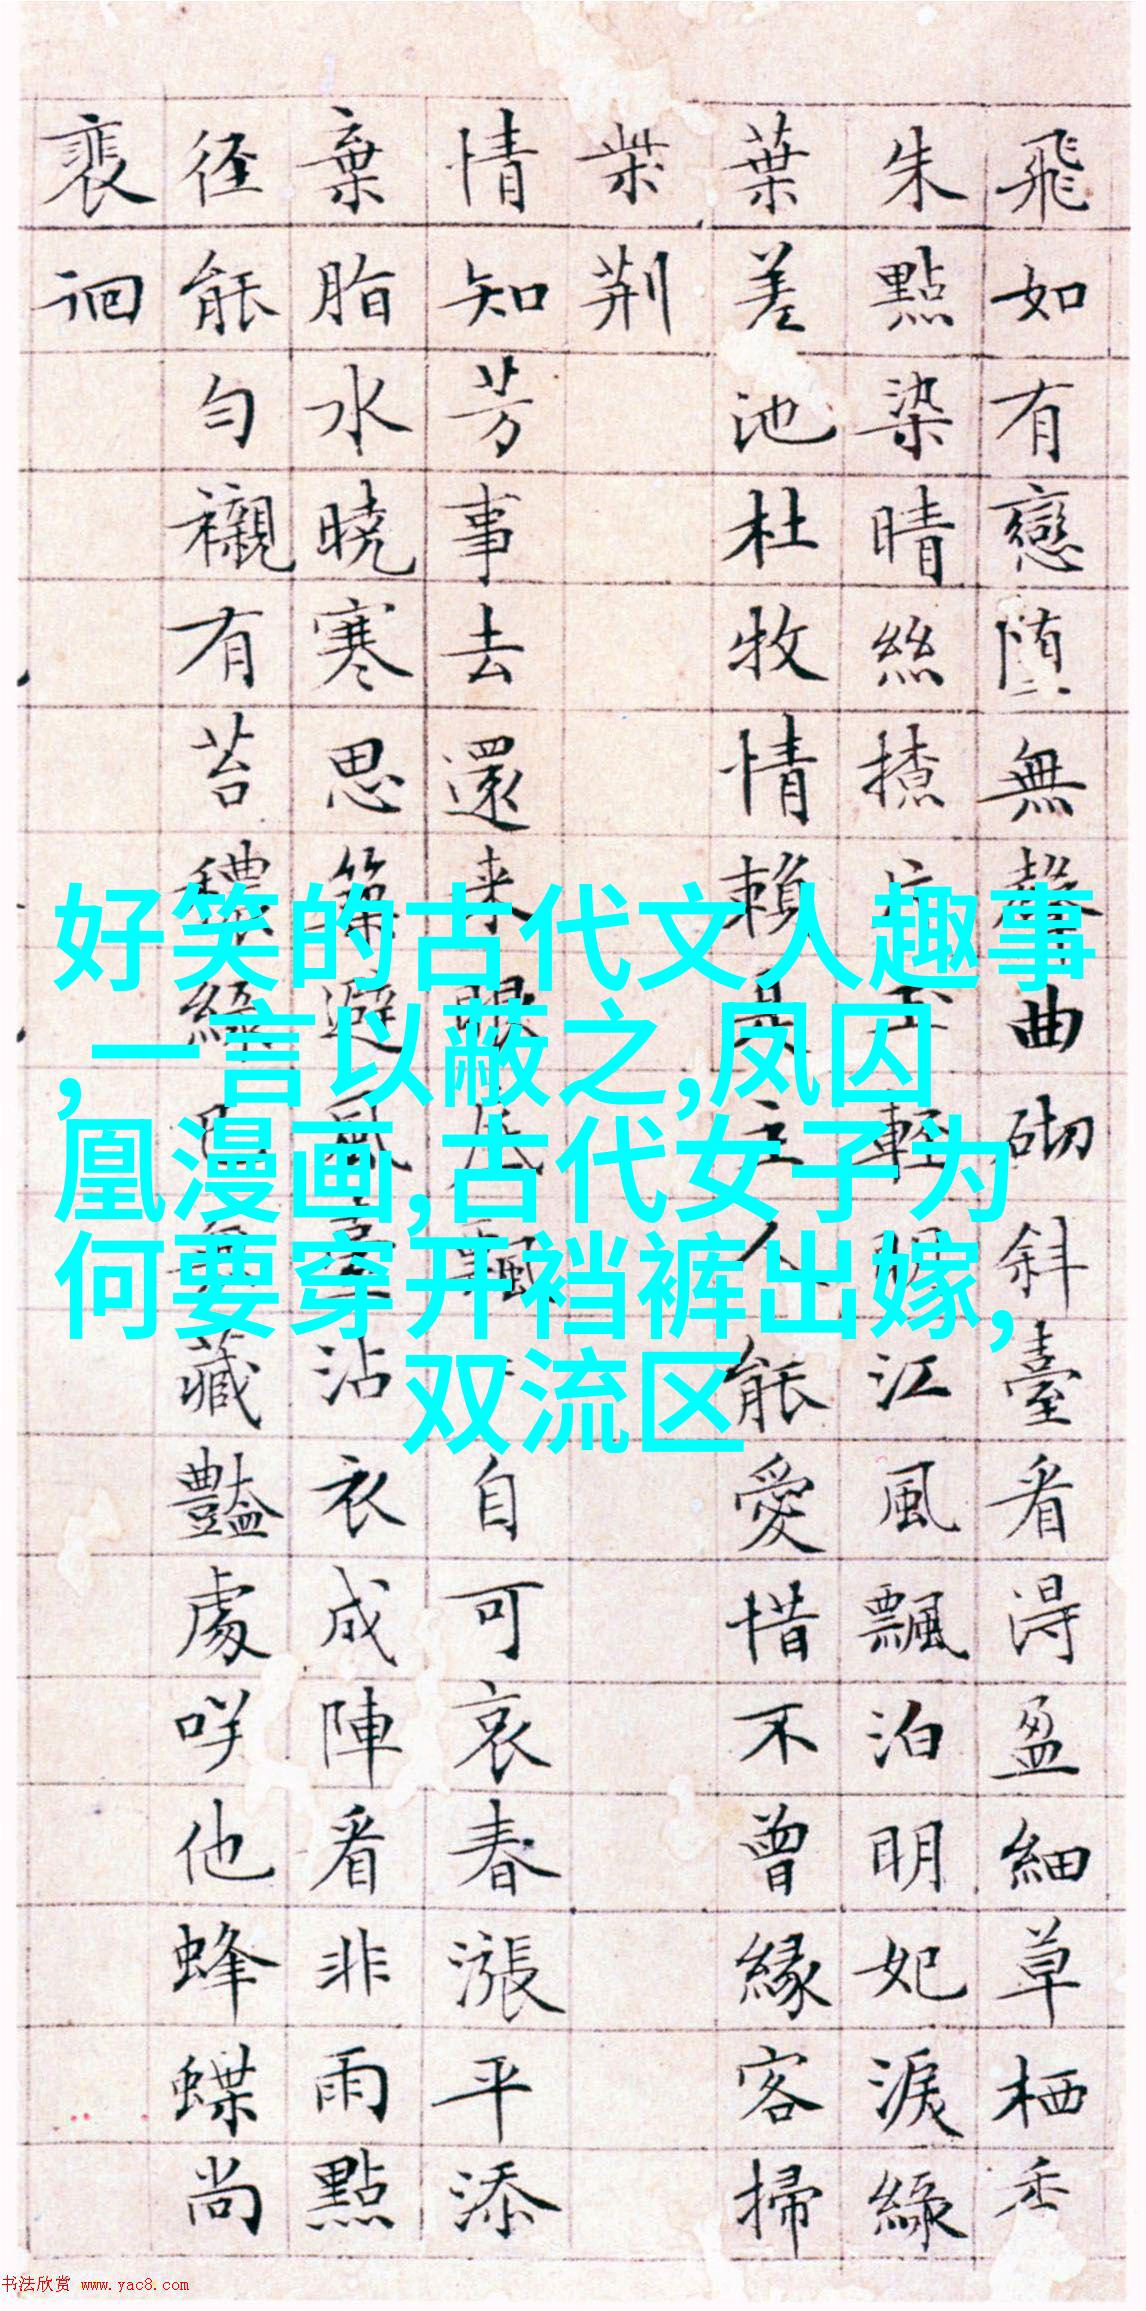 飛如有戀堕無聲曲砌斜臺看得盈細草栖香
朱點染晴絲揸 輕 江風飄泊明妃淚綠
葉差池杜牧情賴 主人能愛惜不曾緣客掃
柴荆
情知芳事去還来眼底飄 自可哀春漲平添
棄脂水曉寒思箔避風臺沾衣成陣看非雨點
径能勻襯有苔穠緑 無藏豔處咲他蜂蝶尚
裴徊
好笑的古代文人趣事
,一言以蔽之,凤囚
凰漫画,古代女子为
何要穿开裆裤出嫁,
双流区
书法欣赏 www.yac8.com